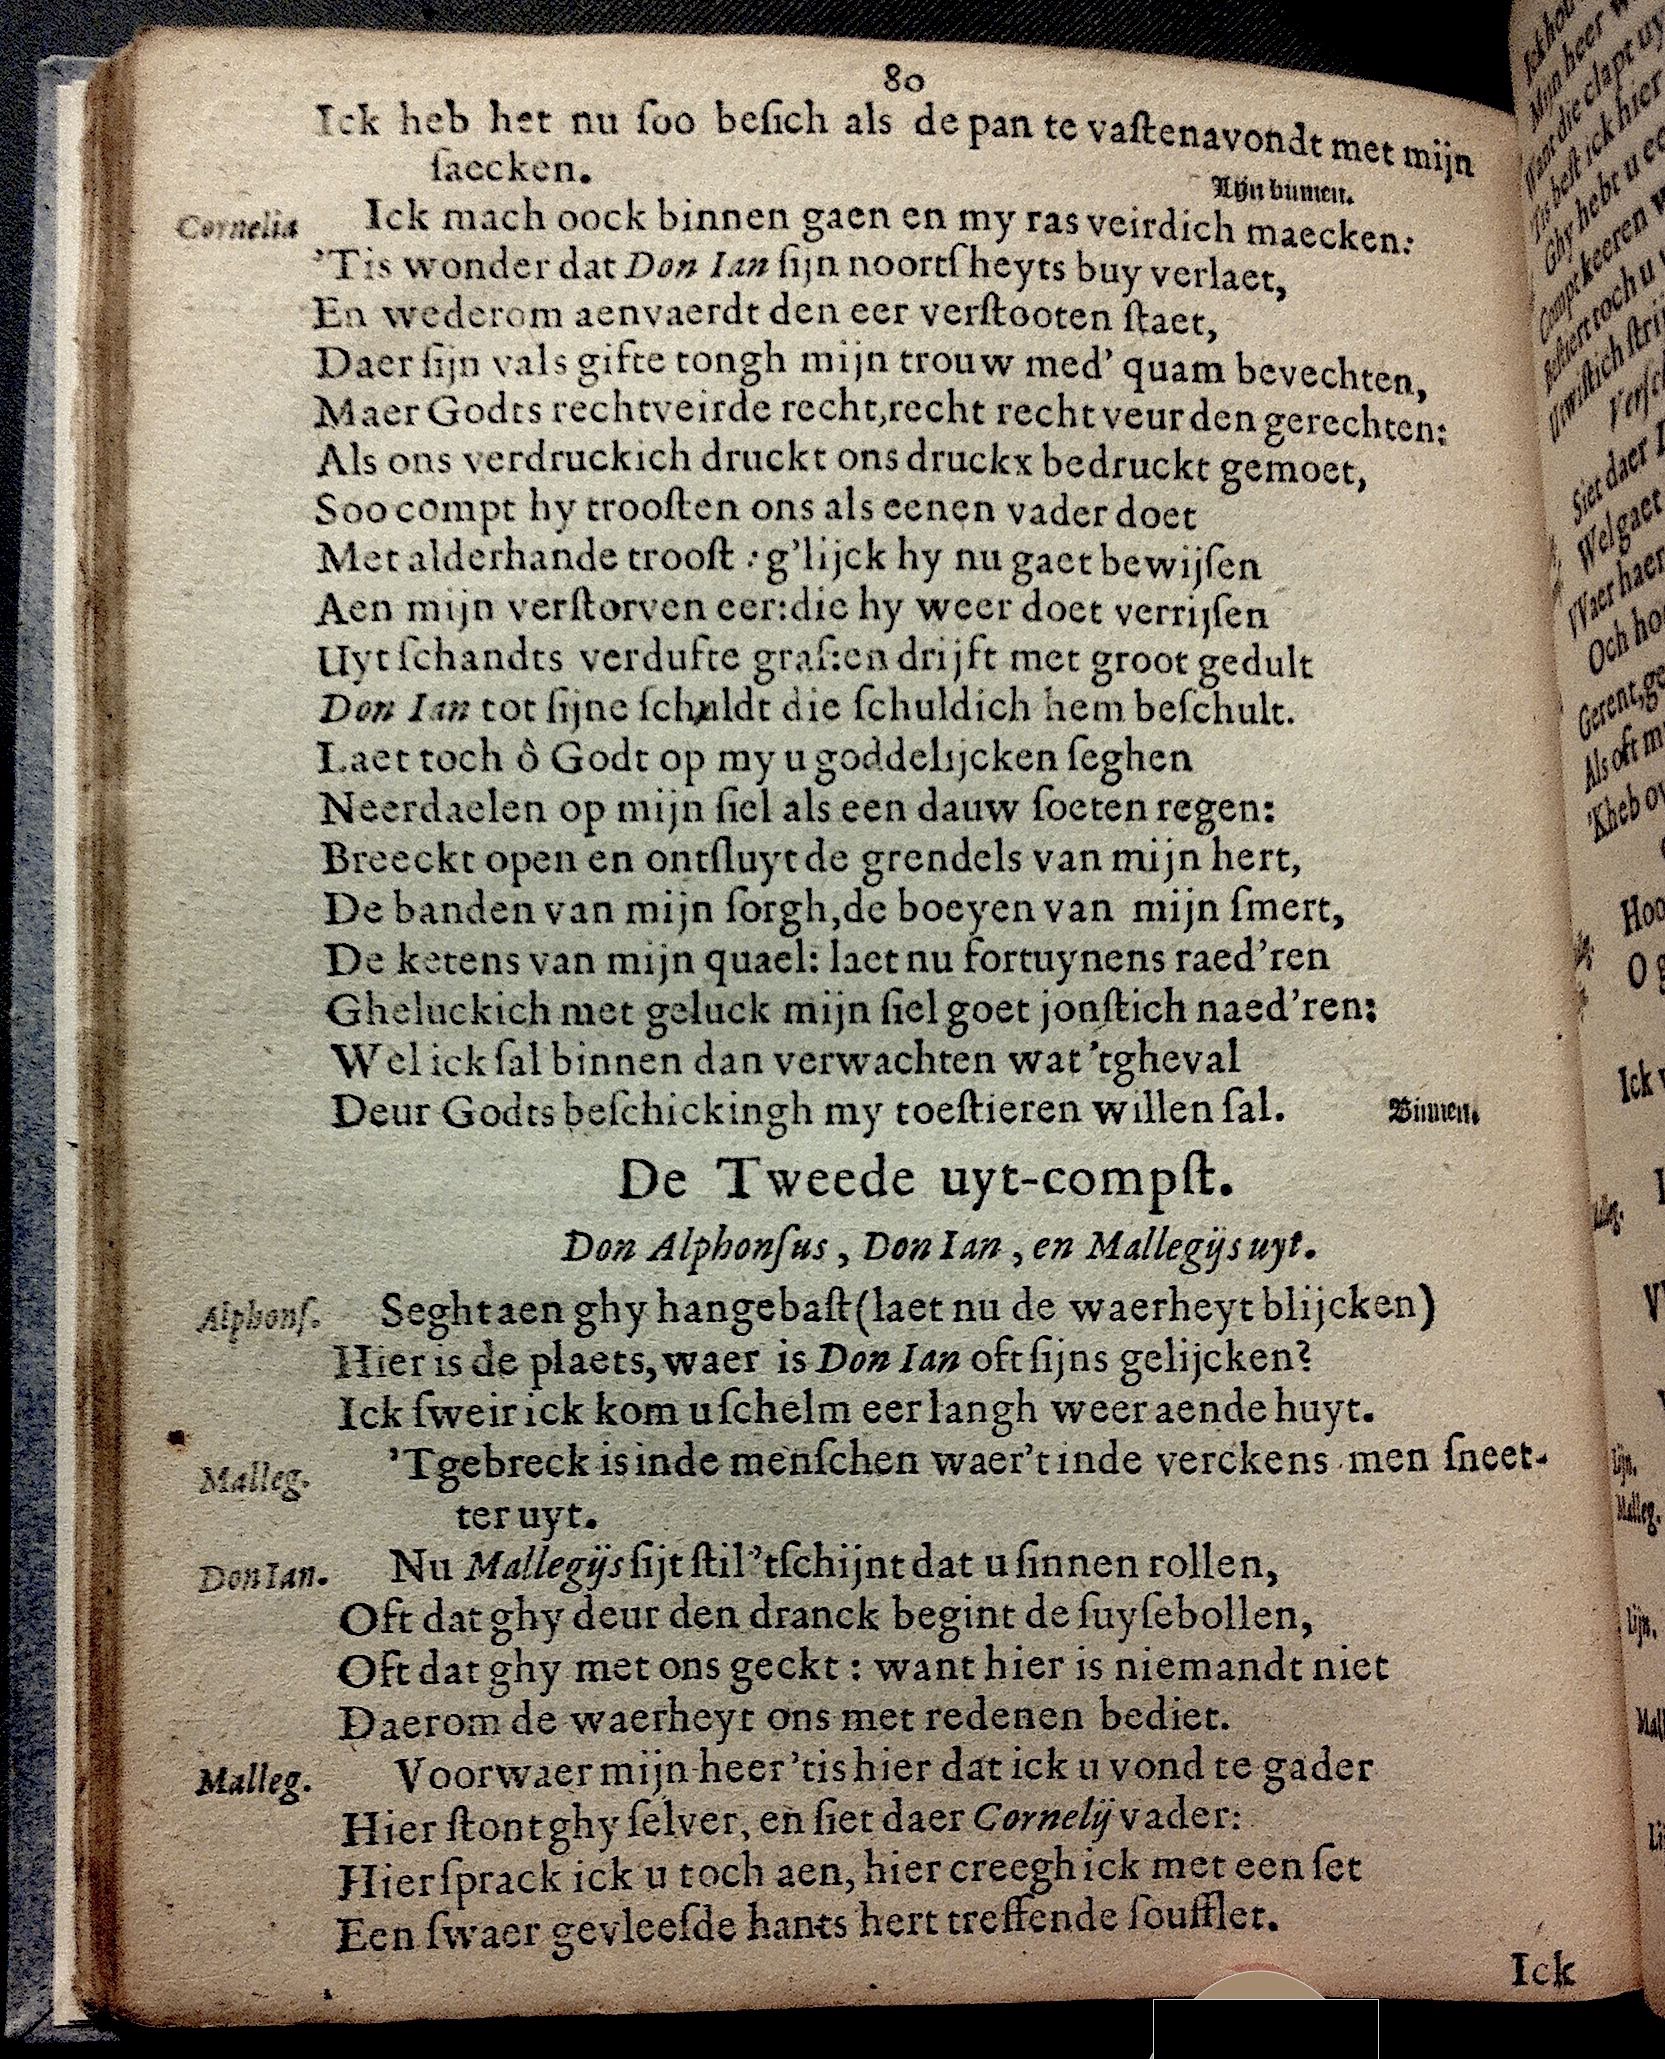 80
Ick heb het nu ſoo beſich als de pan te vaſtenavondt met mijn
ſaecken.
Lijn binnen.
Cornelia Ick mach oock binnen gaen en my ras veirdich maecken:
'Tis wonder dat Don Ian ſijn noortſheyts buy verlaet,
En wederom aenvaerdt den eer verſtooten ſtaet,
Daer ſijn vals gifte tongh mijn trouw med' quam bevechten,
Maer Godts rechtveirde recht,recht recht veur den gerechten:
Als ons verdruckich druckt ons druckx bedruckt gemoet,
Soo compt hy trooſten ons als eenen vader doet
Met alderhande trooſt : g'lijck hy nu gaet bewijſen
Aen mijn verſtorven eer:die hy weer doet verrijſen
Uyt ſchandts verdufte graf:en drijft met groot gedult
Don Ian tot ſijne ſchuldt die ſchuldich hem beſchult.
Laet toch ô Godt op my u goddelijcken ſeghen
Neerdaelen op mijn ſiel als een dauw ſoeten regen:
Breeckt open en ontſluyt de grendels van mijn hert,
De banden van mijn ſorgh,de boeyen van mijn ſmert,
De ketens van mijn quael: laet nu fortuynens raed'ren
Gheluckich met geluck mijn ſiel goet jonſtich naed'ren:
Wel ick ſal binnen dan verwachten wat 'tgheval
Deur Godts beſchickingh my toeſtieren willen ſal. Binnen.
De Tweede uyt-compſt.
Don Alphonſus , Don Ian , en Mallegijs uyt.
Alphonſ. Seght aen ghy hangebaſt (laet nu de waerheyt blijcken)
Hier is de plaets, waer is Don Ian oft ſijns gelijcken?
Ick ſweir ick kom u ſchelm eer langh weer aende huyt.
Malleg. 'Tgebreck is inde menſchen waer't inde verckens men ſneet-
ter uyt.
Don Ian. Nu Mallegijs ſijt ſtil 'tſchijnt dat u ſinnen rollen,
Oft dat ghy deur den dranck begint de ſuyſebollen,
Oft dat ghy met ons geckt : want hier is niemandt niet
Daerom de waerheyt ons met redenen bediet.
Malleg. Voorwaer mijn heer 'tis hier dat ick u vond te gader
Hier ſtont ghy ſelver, en ſiet daer Cornelij vader:
Hier ſprack ick u toch aen, hier creegh ick met een ſet
Een ſwaer gevleeſde hants hert treffende ſoufflet.
Ick